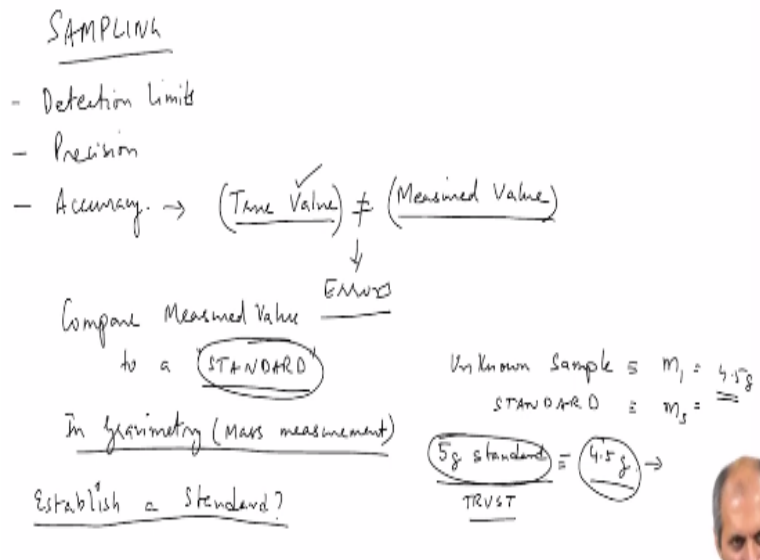 SAMPLING
- Detection Limits
- Precision
- Accuracy. → (True Value) ✓ ≠ (Measured Value)
↓
ERRORS
Compare Measured Value
to a "STANDARD"
In Gravimetry (Mass measurement)
Establish a Standard?
Unknown Sample ≡ m₁ = 4.5g
STANDARD ≡ mₛ =
5g standard ≡ 4.5g. →
TRUST